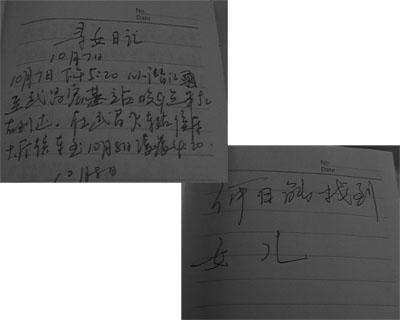 No.
Date
寻女日记
10月7日
10月7日下午5:20从潜江
至武昌宏基站晚9点半
左到达。在武昌火车站候车
大厅候车至10月8日凌晨4:20.
10月8日
No
Date
何日能找到
女儿